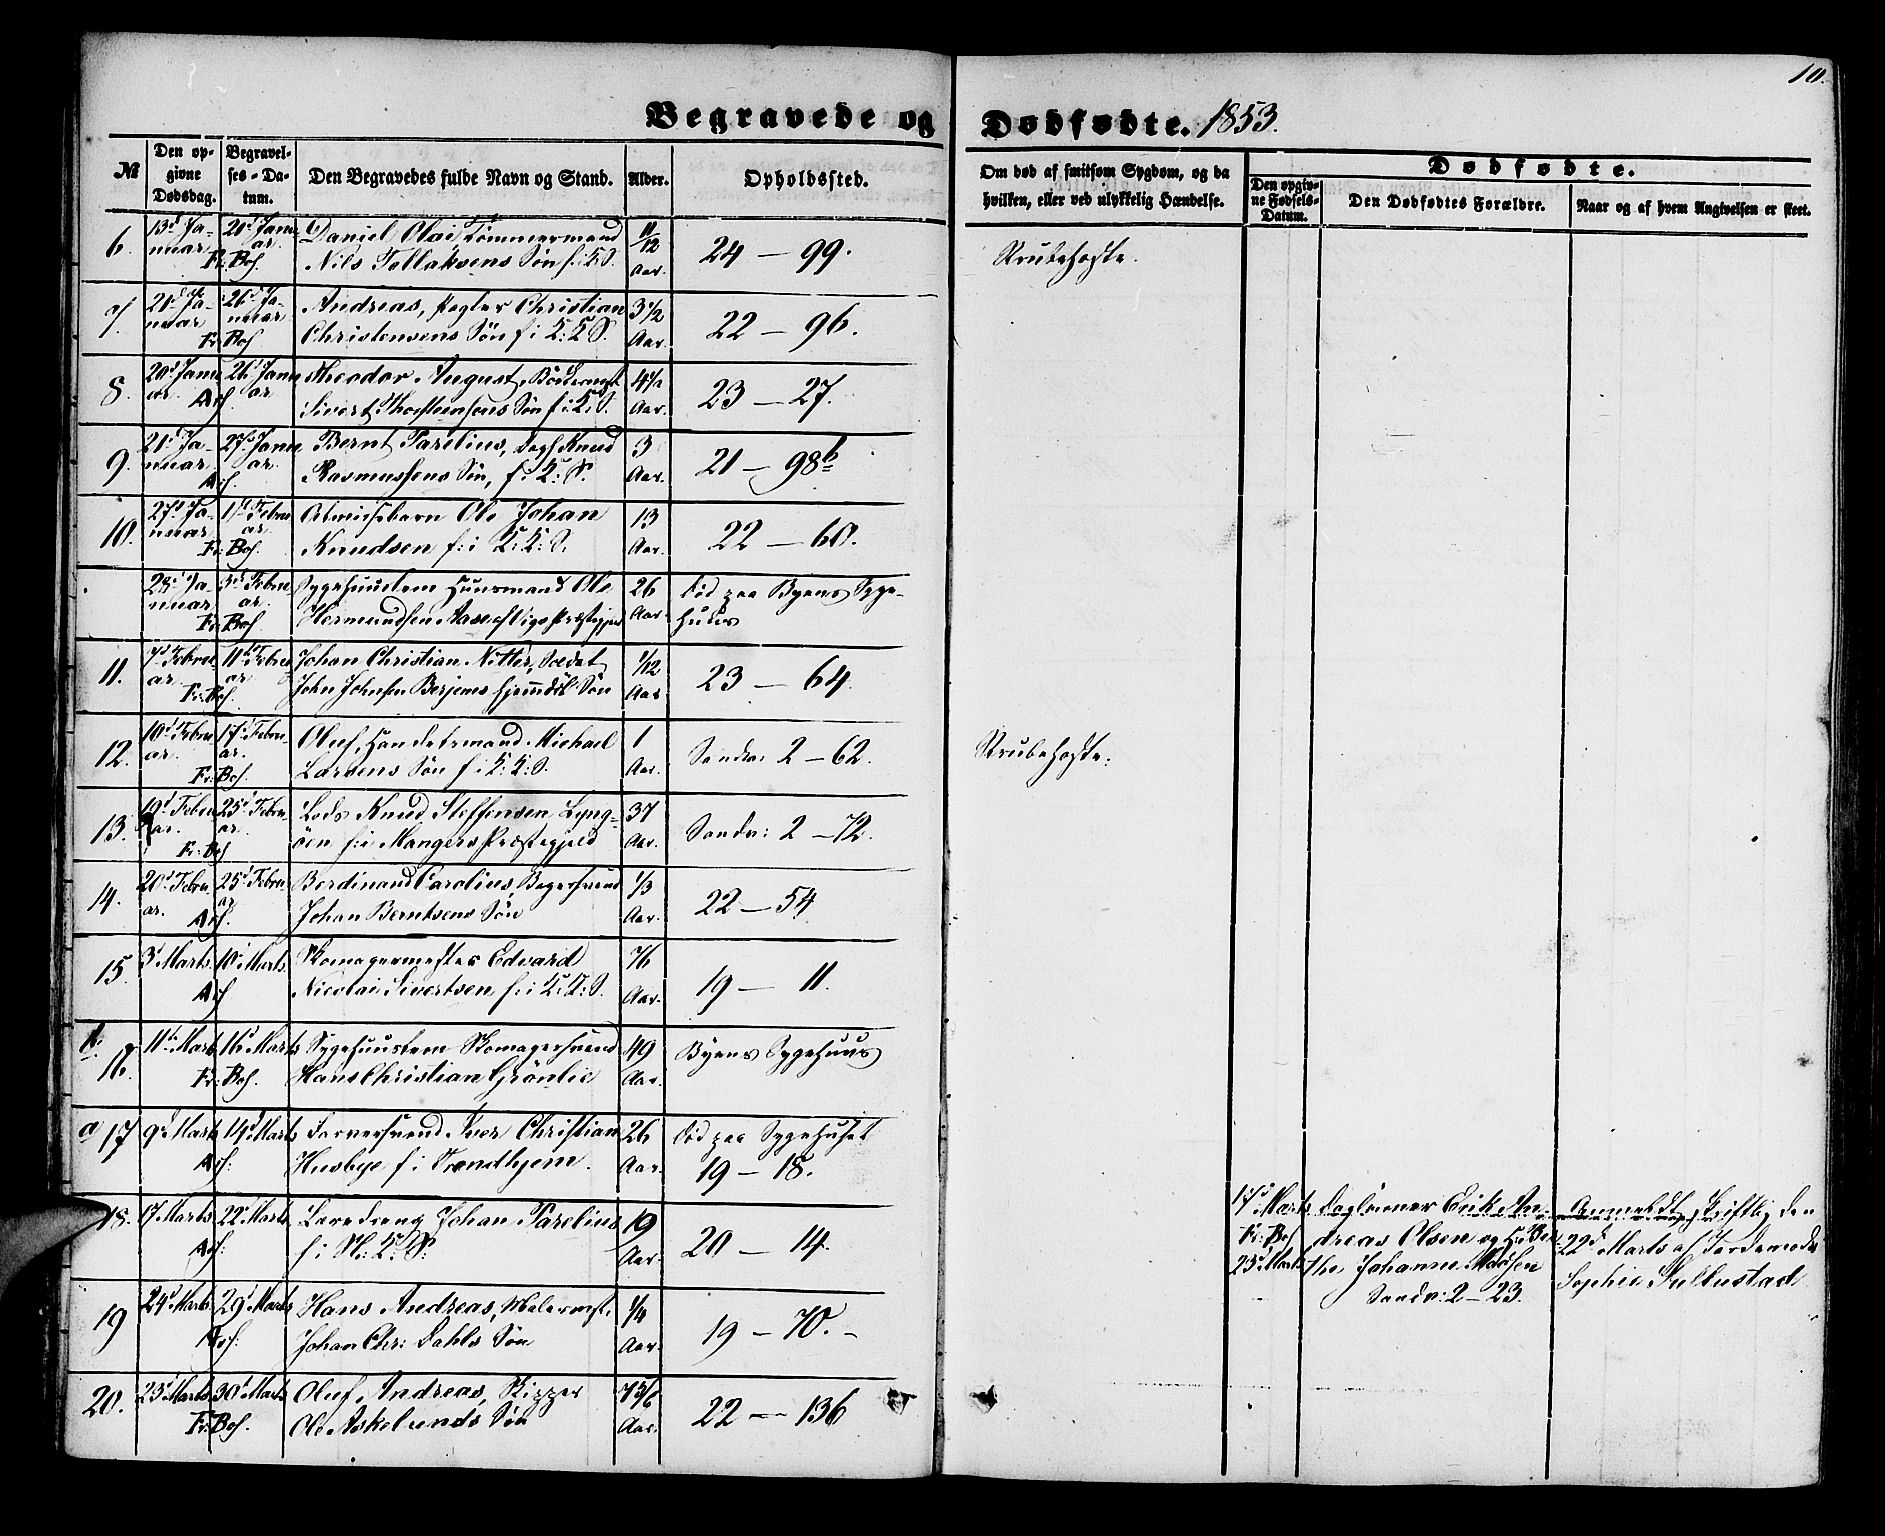 10.
Begravede og Dødfødte. 1853.
№
Den opgivne Dødsdag.
Begravelses-Datum.
Den Begravedes fulde Navn og Stand.
Alder.
Opholdssted.
Om død af smitsom Sygdom, og da hvilken, eller ved ulykkelig Hændelse.
Dødfødte.
Den opgivne Fødsels-Datum.
Den Dødfødtes Forældre.
Naar og af hvem Angivelsen er skeet.
6. 13d Januar 20d Januar Fr: Bos. Daniel Olai Tømmermand
Nils Tollaksens Søn f: i K: S. 11/12 Aar. 24 — 99. Strubehoste.
7. 21d Januar 26d Januar Fr. Bos. Andreas, Christian
Christensens Søn f i K: K S. 3 1/2 Aar. 22 — 96.
8. 20d Januar 26d Januar Theodor August,
Sivert Søn f: i K: S. 4 1/2 Aar. 23 — 27.
9. 21d Januar 27d Januar Bernt Parelius, Knud
Rasmussens Søn, f: i K: S. 3 Aar. 21 — 98b
10. 27d Januar 1d Februar Fr: Bos. Ole Johan
Knudsen f: i K: K: S. 13 Aar. 22 — 60.
28d Januar 3d Februar Fr: Bos. Huusmand Ole
Hermundsen 26 Aar. Død paa Byens Sygehuus
11. 7d Februar 11d Februar Fr: Bos. Johan Christian Nitter, Soldat
John Johnsen Søn 1/12 Aar 23 — 64.
12. 10d Februar 17d Februar Fr: Bos. Oluf, Handelsmand Michael
Larsens Søn f i K: K: S. 1 Aar. Sandv: 2 — 62. Strubehoste.
13. 19d Februar 25d Februar Fr: Bos Lods Knud Steffensen Lyngøen
f: i Mangers Præstegjeld 37 Aar. Sandv: 2 — 72.
14. 20d Februar 25d Februar Berdinand Carolius, Bagersvend
Johan Berntsens Søn 1/3 Aar. 22 — 54
15. 3d Marts 10d Marts Skomagermester Edvard
Nicolai Sivertsen f: i K: K: S. 76 Aar. 19 — 11.
b 16. 11d Marts 16d Marts Fr: Bos. Sygehuuslem Skomagersvend
Hans Christian Grönlie 49 Aar. Byens Sygehuus
a 17 9d Marts 14d Marts Farversvend Iver Christian
Husbye f i Trondhjem. 26 Aar. Død paa Sygehuset
19 — 18.
18. 17 Marts 22d Marts Læredreng Johan Parelius
19 Aar. 20 — 14.
17d Marts Fr: Bos 23d Marts Daglönner Erik Andreas
Olsen og H: Berthe
Johanne Madsen
Sandv: 2 — 23.
Anmeldt skriftlig den
22d Marts af Jordemoder
Sophie Sullustad
19 24d Marts 29d Marts Hans Andreas, Malermest.
Johan Chr: Dahls Søn 1/4 Aar. 19 — 70. —
20. 23d Marts 30d Marts Fr: Bos. Oluf, Andreas, Skipper
Ole Askelunds Søn Aar. 22 — 136